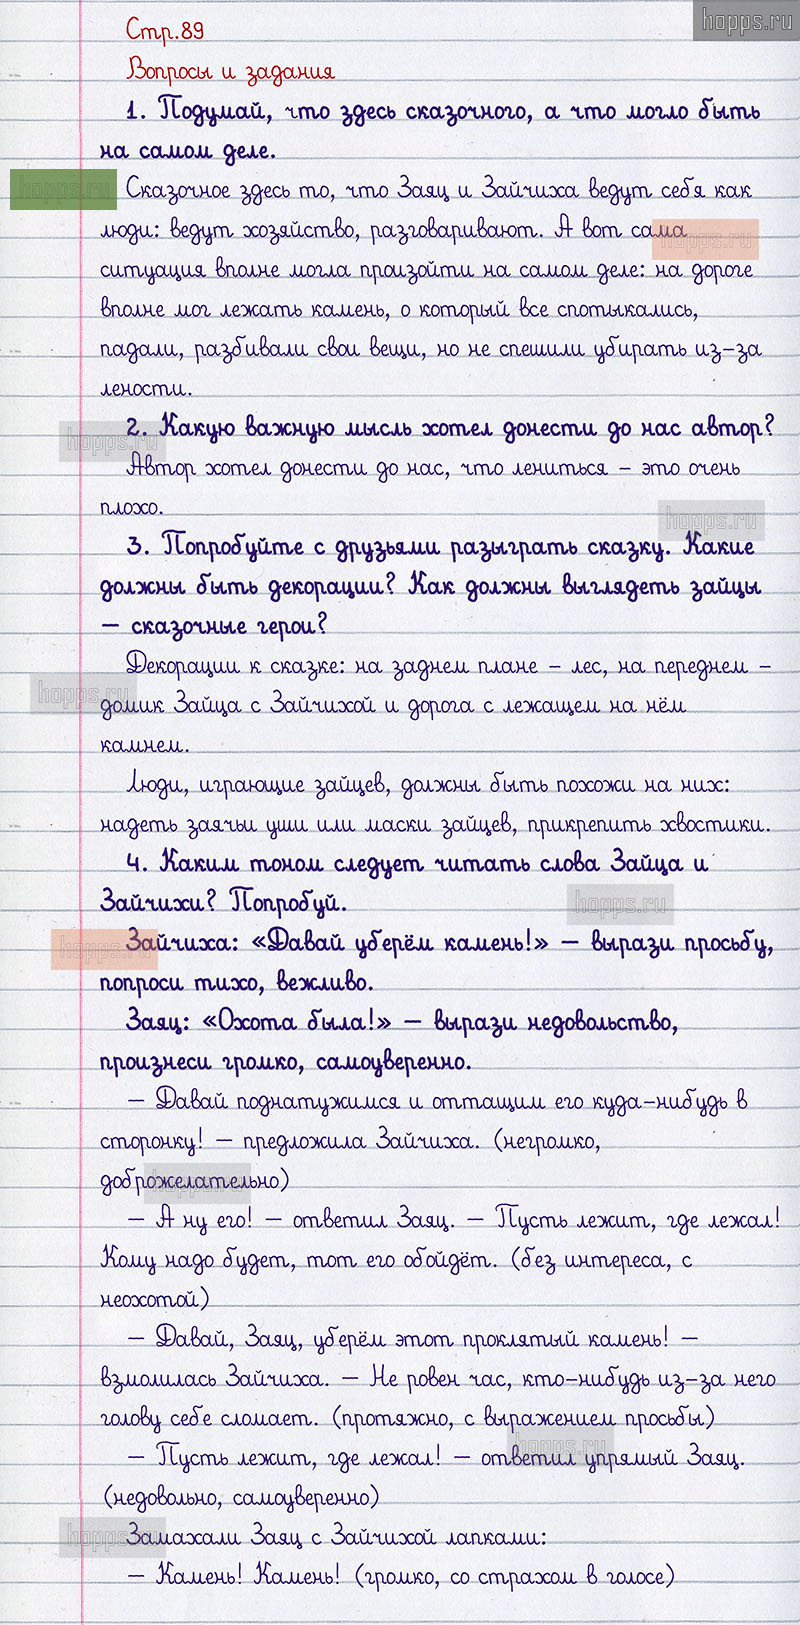 hopps.ru
Стр.89
Вопросы и задания
1. Подумай, что здесь сказочного, а что могло быть
на самом деле.
hopps.ru
Сказочное здесь то, что Заяц и Зайчиха ведут себя как
люди: ведут хозяйство, разговаривают. А вот сама
hopps.ru
ситуация вполне могла произойти на самом деле: на дороге
вполне мог лежать камень, о который все спотыкались,
падали, разбивали свои вещи, но не спешили убирать из-за
лености.
2. Какую важную мысль хотел донести до нас автор?
hopps.ru
Автор хотел донести до нас, что лениться – это очень
плохо.
hopps.ru
3. Попробуйте с друзьями разыграть сказку. Какие
должны быть декорации? Как должны выглядеть зайцы
– сказочные герои?
Декорации к сказке: на заднем плане – лес, на переднем –
hopps.ru
домик Зайца с Зайчихой и дорога с лежащем на нём
камнем.
Люди, играющие зайцев, должны быть похожи на них:
надеть заячьи уши или маски зайцев, прикрепить хвостики.
4. Каким тоном следует читать слова Зайца и
Зайчихи? Попробуй.
hopps.ru
Зайчиха: «Давай уберём камень!» – вырази просьбу,
hopps.ru
попроси тихо, вежливо.
Заяц: «Охота была!» – вырази недовольство,
произнеси громко, самоуверенно.
– Давай поднатужимся и оттащим его куда-нибудь в
сторонку! – предложила Зайчиха. (негромко,
доброжелательно)
hopps.ru
– А ну его! – ответил Заяц. – Пусть лежит, где лежал!
Кому надо будет, тот его обойдёт. (без интереса, с
неохотой)
– Давай, Заяц, уберём этот проклятый камень! –
взмолилась Зайчиха. – Не ровен час, кто-нибудь из-за него
голову себе сломает. (протяжно, с выражением просьбы)
hopps.ru
– Пусть лежит, где лежал! – ответил упрямый Заяц.
(недовольно, самоуверенно)
hopps.ru
Замахали Заяц с Зайчихой лапками:
– Камень! Камень! (громко, со страхом в голосе)